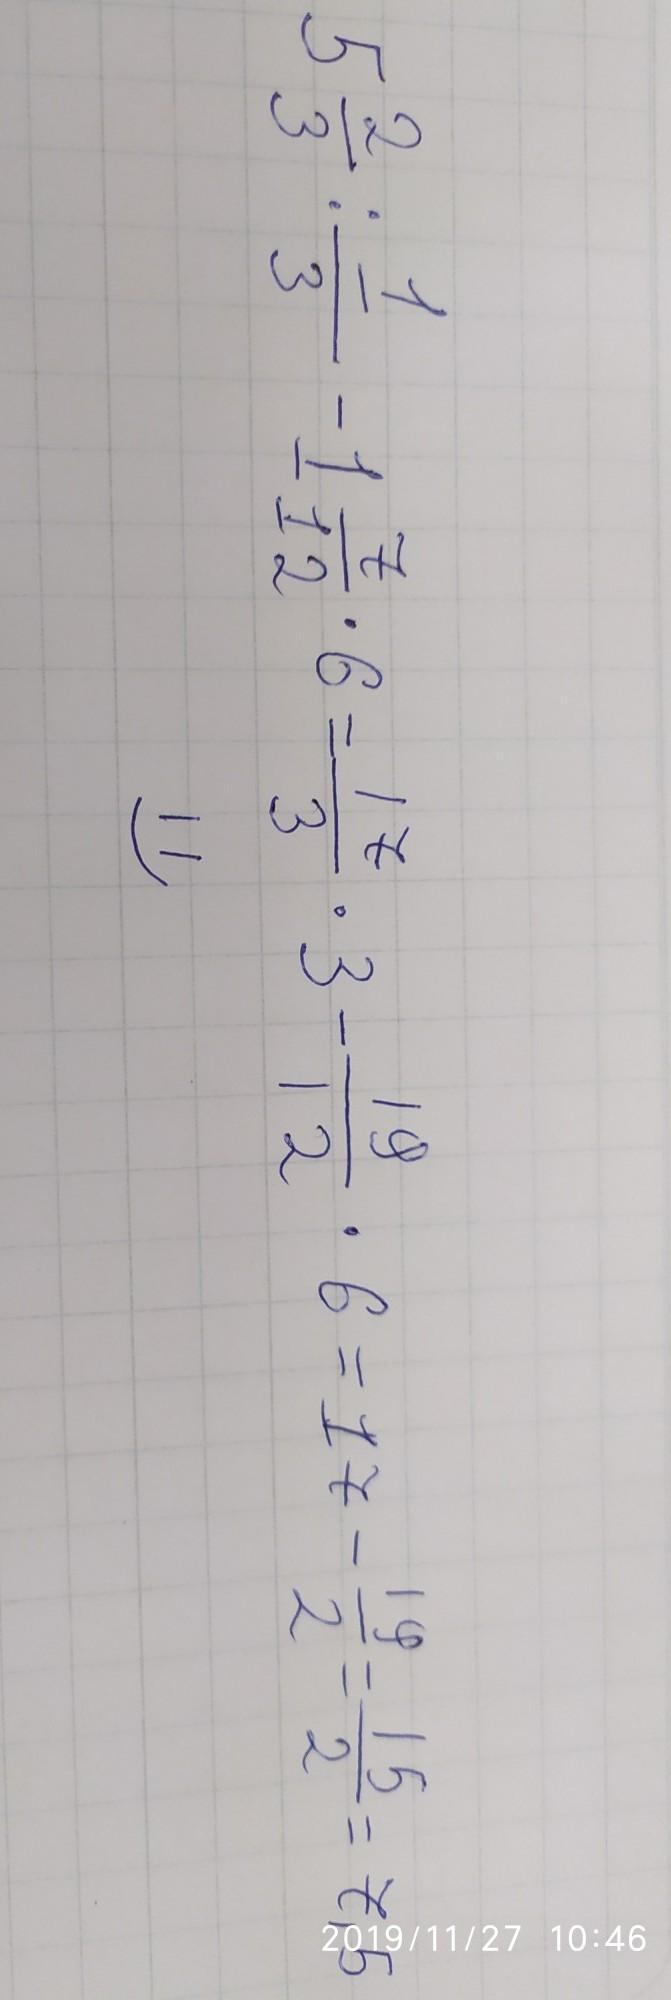 5 2/3 : 1/3 - 1 7/12 · 6 = 17/3 · 3 - 19/12 · 6 = 17 - 19/2 = 15/2 = 7,5
2019/11/27 10:46